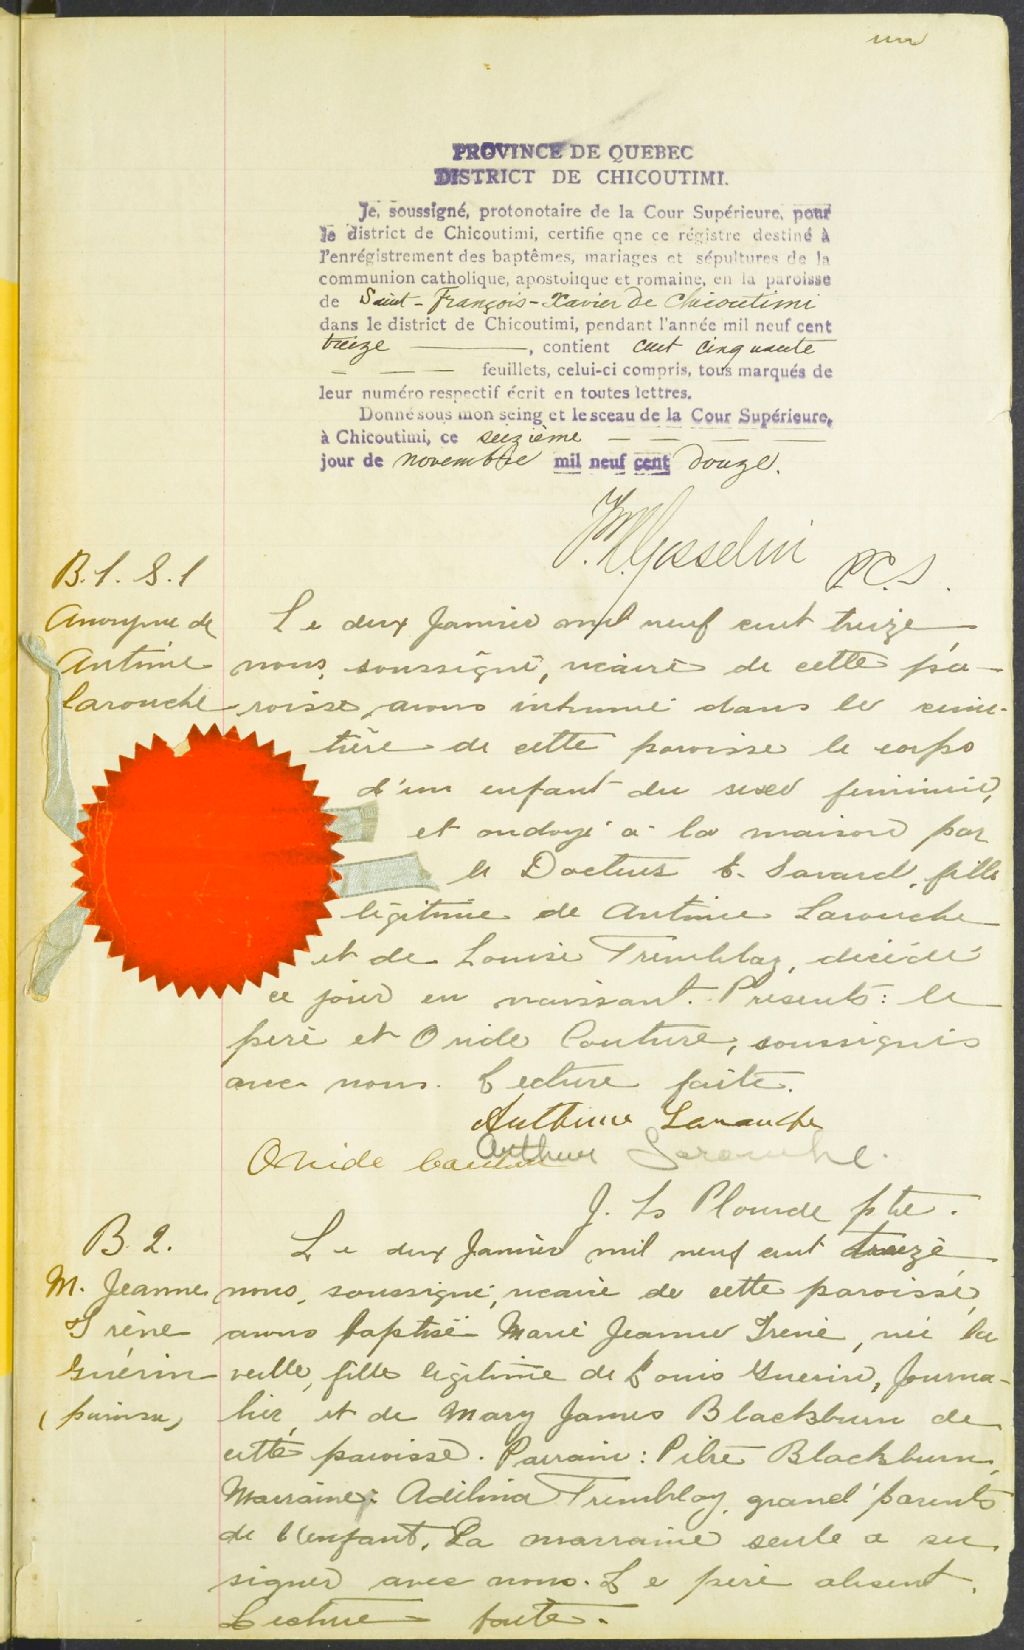 un
PROVINCE DE QUEBEC
DISTRICT DE CHICOUTIMI.
Je, soussigné, protonotaire de la Cour Supérieure, pour
le district de Chicoutimi, certifie qne ce régistre destiné à
l'enrégistrement des baptêmes, mariages et sépultures de la
communion catholique, apostolique et romaine, en la paroisse
de Saint-François-Xavier de Chicoutimi
dans le district de Chicoutimi, pendant l'année mil neuf cent
treize ———, contient cent cinquante
— — — feuillets, celui-ci compris, tous marqués de
leur numéro respectif écrit en toutes lettres.
Donné sous mon seing et le sceau de la Cour Supérieure,
à Chicoutimi, ce seizième — — — —
jour de novembre mil neuf cent douze.
Gosselin P.C.S.
B.1. S.1
Anonyme de
Antime
Larouche
Le deux Janvier mil neuf cent treize
nous, soussigné, vicaire de cette pa-
roisse, avons inhumé dans le cime-
tière de cette paroisse le corps
d'un enfant du sexe feminin,
et ondoyé à la maison par
le Docteur E. Savard, fille
légitime de Antime Larouche
et de Louise Tremblay, décédé
ce jour en naissant. Présents: le
père et Ovide Couture, soussignés
avec nous. Lecture faite.
Anthime Larouche
Ovide Couture Arthur Larouche.
J. Ls Plourde ptre.
B. 2.
M. Jeanne
Irène
Guérin
Le deux Janvier mil neuf cent treize
nous, soussigné, vicaire de cette paroisse,
avons baptisé Marie Jeanne Irène, née la
veille, fille légitime de Louis Guerin, Journa-
lier, et de Mary James Blackburn de
cette paroisse. Parrain: Pitre Blackburn,
Marraine: Adélina Tremblay, grand'parents
de l'enfant. La marraine seule a su
signer avec nous. Le père absent.
Lecture faite.